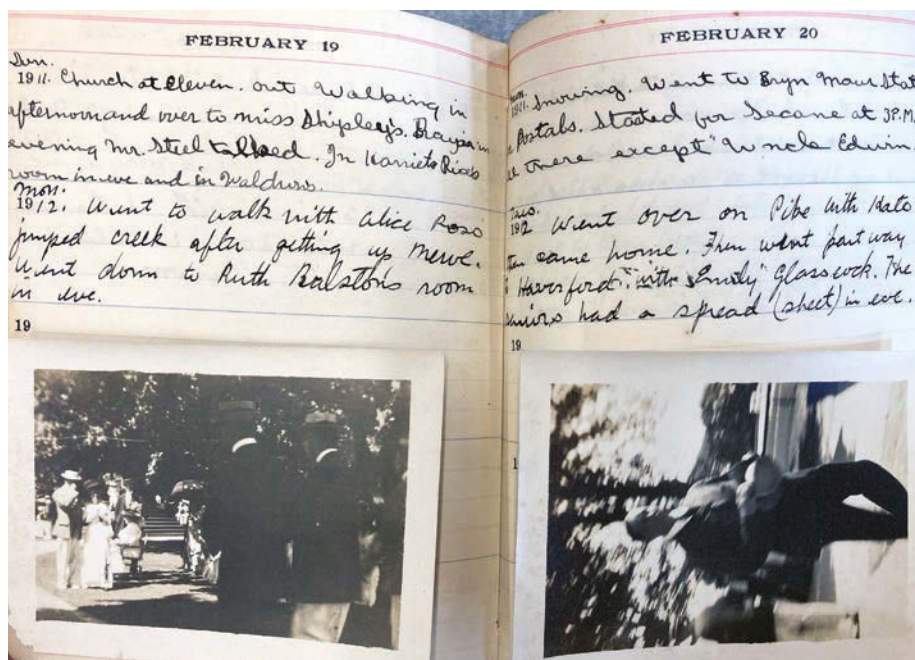 FEBRUARY 19
Sun.
1911. Church at eleven. out walking in
afternoon and over to Miss Shipley's. Prayers in
evening Mr. Steel talked. In Harriets Rices
room in eve and in Waldrons.
Mon.
1912. Went to walk with Alice Ross
jumped creek after getting up nerve.
Went down to Ruth Ralston's room
in eve.
19
FEBRUARY 20
Mon.
1911. Snowing. Went to Bryn Mawr Stat
Postals. Started for Secane at 3 P.M.
there except Uncle Edwin.
Tues.
1912 Went over on Pike with Kato
then came home. Then went part way
Haverford with Emily Glasscock. The
Juniors had a spread (sheet) in eve.
19
1